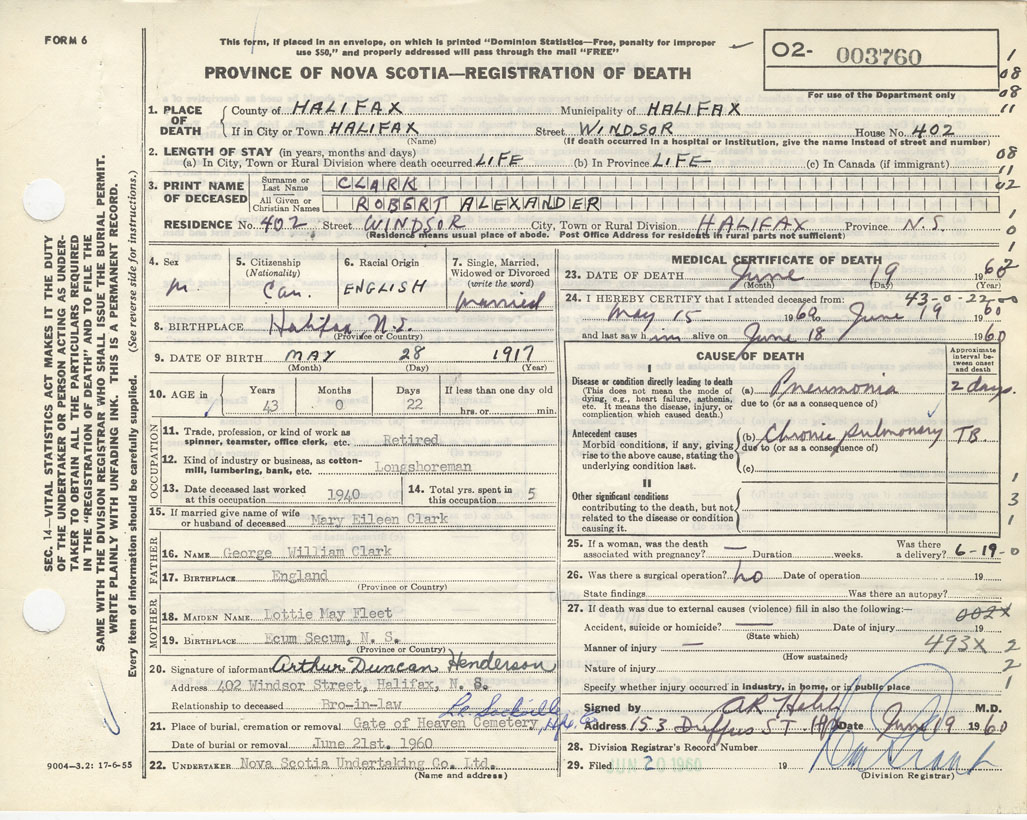 FORM 6
This form, if placed in an envelope, on which is printed "Dominion Statistics—Free, penalty for improper
use $50," and properly addressed will pass through the mail "FREE"
PROVINCE OF NOVA SCOTIA—REGISTRATION OF DEATH
02- 003760
For use of the Department only
1. PLACE OF DEATH
County of HALIFAX Municipality of HALIFAX
If in City or Town HALIFAX Street WINDSOR House No. 402
(Name) (If death occurred in a hospital or institution, give the name instead of street and number)
2. LENGTH OF STAY (in years, months and days)
(a) In City, Town or Rural Division where death occurred LIFE (b) In Province LIFE (c) In Canada (if immigrant)
3. PRINT NAME OF DECEASED
Surname or Last Name CLARK
All Given or Christian Names ROBERT ALEXANDER
RESIDENCE No. 402 Street WINDSOR City, Town or Rural Division HALIFAX Province N.S.
(Residence means usual place of abode. Post Office Address for residents in rural parts not sufficient)
4. Sex M.
5. Citizenship (Nationality) Can.
6. Racial Origin ENGLISH
7. Single, Married, Widowed or Divorced (write the word) Married
8. BIRTHPLACE Halifax, N.S.
(Province or Country)
9. DATE OF BIRTH MAY 28 1917
(Month) (Day) (Year)
10. AGE in Years 43 Months 0 Days 22 If less than one day old hrs. or min.
OCCUPATION
11. Trade, profession, or kind of work as spinner, teamster, office clerk, etc. Retired
12. Kind of industry or business, as cotton-mill, lumbering, bank, etc. Longshoreman
13. Date deceased last worked at this occupation 1940
14. Total yrs. spent in this occupation 5
15. If married give name of wife or husband of deceased Mary Eileen Clark
FATHER
16. NAME George William Clark
17. BIRTHPLACE England
(Province or Country)
MOTHER
18. MAIDEN NAME Lottie May Fleet
19. BIRTHPLACE Ecum Secum, N. S.
(Province or Country)
20. Signature of informant Arthur Duncan Henderson
Address 402 Windsor Street, Halifax, N. S.
Relationship to deceased Bro-in-law
21. Place of burial, cremation or removal Gate of Heaven Cemetery,
Date of burial or removal June 21st. 1960
22. UNDERTAKER Nova Scotia Undertaking Co. Ltd.
(Name and address)
9004—3.2: 17-6-55
MEDICAL CERTIFICATE OF DEATH
23. DATE OF DEATH June 19 1960
(Month) (Day)
43-0-22-00
24. I HEREBY CERTIFY that I attended deceased from:
May 15 1960 June 19 1960
and last saw him alive on June 18 1960
CAUSE OF DEATH
Approximate interval between onset and death
I
Disease or condition directly leading to death
(This does not mean the mode of dying, e.g., heart failure, asthenia, etc. It means the disease, injury, or complication which caused death.)
(a) Pneumonia 2 days.
due to (or as a consequence of)
Antecedent causes
Morbid conditions, if any, giving rise to the above cause, stating the underlying condition last.
(b) Chronic pulmonary TB.
due to (or as a consequence of)
(c)
II
Other significant conditions
contributing to the death, but not related to the disease or condition causing it.
25. If a woman, was the death associated with pregnancy? — Duration weeks. Was there a delivery? 6-19-0
26. Was there a surgical operation? no Date of operation 19
State findings Was there an autopsy?
27. If death was due to external causes (violence) fill in also the following:—
002X
Accident, suicide or homicide? — Date of injury 19
(State which)
Manner of injury — 493X
(How sustained)
Nature of injury
Specify whether injury occurred in industry, in home, or in public place
Signed by M.D.
Address 153 Duffus ST. Date June 19 1960
28. Division Registrar's Record Number
29. Filed 20 1960 19
(Division Registrar)
1
08
08
11
08
11
02
1
0
1
2
1
3
1
2
2
1
SEC. 14—VITAL STATISTICS ACT MAKES IT THE DUTY
OF THE UNDERTAKER OR PERSON ACTING AS UNDER-
TAKER TO OBTAIN ALL THE PARTICULARS REQUIRED
IN THE "REGISTRATION OF DEATH" AND TO FILE THE
SAME WITH THE DIVISION REGISTRAR WHO SHALL ISSUE THE BURIAL PERMIT.
WRITE PLAINLY WITH UNFADING INK. THIS IS A PERMANENT RECORD.
Every item of information should be carefully supplied. (See reverse side for instructions.)